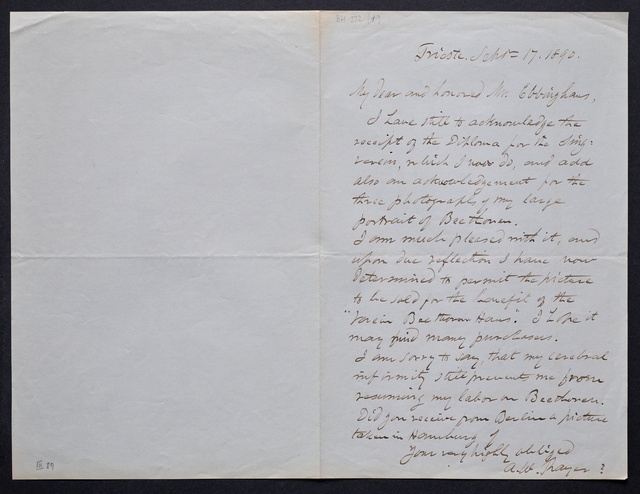 BH 222/89
Trieste. Sept 17. 1890.
My dear and honored Mr. Ebbinghaus,
I have still to acknowledge the
receipt of the Diploma for the Sing-
verein, which I now do, and add
also an acknowledgement for the
three photographs of my large
portrait of Beethoven.
I am much pleased with it, and
upon due reflection I have now
determined to permit the picture
to be sold for the benefit of the
"Verein Beethoven Haus." I hope it
may find many purchasers.
I am sorry to say, that my cerebral
infirmity still prevents me from
resuming my labor on Beethoven.
Did you receive from Berlin a picture
taken in Homburg of
Your very highly obliged
A. W. Thayer ?
III. 89